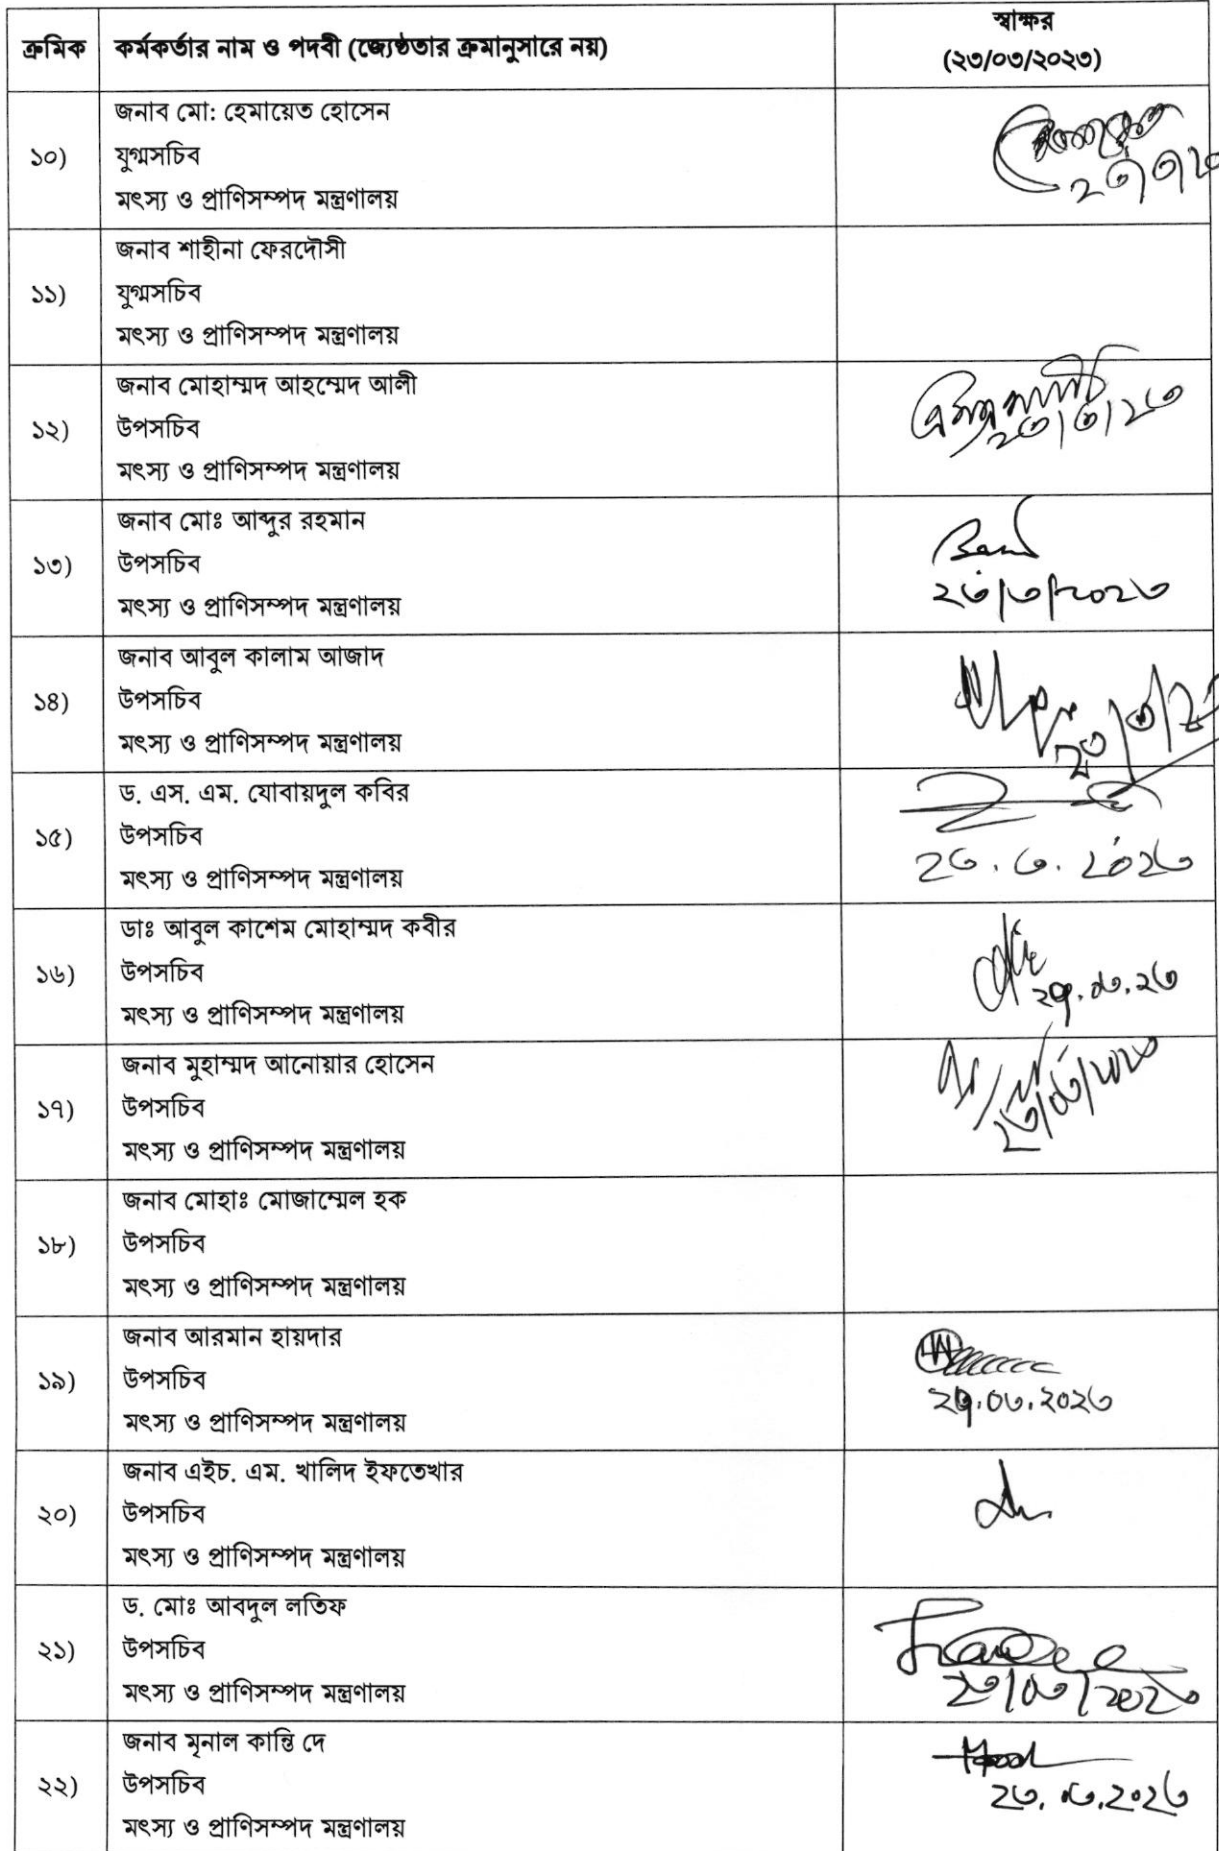 ক্রমিক কর্মকর্তার নাম ও পদবী (জ্যেষ্ঠতার ক্রমানুসারে নয়) স্বাক্ষর
(২৩/০৩/২০২৩)
১০) জনাব মো: হেমায়েত হোসেন
যুগ্মসচিব
মৎস্য ও প্রাণিসম্পদ মন্ত্রণালয়
১১) জনাব শাহীনা ফেরদৌসী
যুগ্মসচিব
মৎস্য ও প্রাণিসম্পদ মন্ত্রণালয়
১২) জনাব মোহাম্মদ আহম্মেদ আলী
উপসচিব
মৎস্য ও প্রাণিসম্পদ মন্ত্রণালয়
২৩/৩/২৩
১৩) জনাব মোঃ আব্দুর রহমান
উপসচিব
মৎস্য ও প্রাণিসম্পদ মন্ত্রণালয়
২৩/৩/২০২৩
১৪) জনাব আবুল কালাম আজাদ
উপসচিব
মৎস্য ও প্রাণিসম্পদ মন্ত্রণালয়
১৫) ড. এস. এম. যোবায়দুল কবির
উপসচিব
মৎস্য ও প্রাণিসম্পদ মন্ত্রণালয়
২৩.৩.২০২৩
১৬) ডাঃ আবুল কাশেম মোহাম্মদ কবীর
উপসচিব
মৎস্য ও প্রাণিসম্পদ মন্ত্রণালয়
২৩.০৩.২৩
১৭) জনাব মুহাম্মদ আনোয়ার হোসেন
উপসচিব
মৎস্য ও প্রাণিসম্পদ মন্ত্রণালয়
১৮) জনাব মোহাঃ মোজাম্মেল হক
উপসচিব
মৎস্য ও প্রাণিসম্পদ মন্ত্রণালয়
১৯) জনাব আরমান হায়দার
উপসচিব
মৎস্য ও প্রাণিসম্পদ মন্ত্রণালয়
২৩.০৩.২০২৩
২০) জনাব এইচ. এম. খালিদ ইফতেখার
উপসচিব
মৎস্য ও প্রাণিসম্পদ মন্ত্রণালয়
২১) ড. মোঃ আবদুল লতিফ
উপসচিব
মৎস্য ও প্রাণিসম্পদ মন্ত্রণালয়
২৩/০৩/২০২৩
২২) জনাব মৃনাল কান্তি দে
উপসচিব
মৎস্য ও প্রাণিসম্পদ মন্ত্রণালয়
২৩.০৩.২০২৩